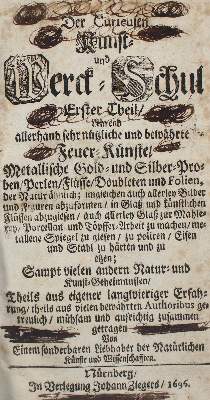 Der Curieusen
Kunst-
und
Werck-Schul
Erster Theil/
Lehrend
allerhand sehr nützliche und bewährte
Feuer-Künste/
Metallische Gold- und Silber-Pro-
ben/Perlen/Flüsse/Doubleten und Folien,
der Natur ähnlich; ingleichen auch allerley Bilder
und Figuren abzuformen, in Glaß und künstlichen
Flüssen abzugiesen/ auch allerley Glaß zur Mahle-
rey/ Porcellan und Töpffer-Arbeit zu machen/ me-
tallene Spiegel zu giesen/ zu polieren/ Eisen
und Stahl zu härten und zu
etzen;
Sampt vielen andern Natur- und
Kunst-Geheimnüssen/
Theils aus eigener langwieriger Erfah-
rung/ theils aus vielen bewährten Authoribus ge-
treulich/ mühsam und aufrichtig zusammen
getragen
Von
Einem sonderbaren Liebhaber der Natürlichen
Künste und Wissenschafften.
Nürnberg/
In Verlegung Johann Ziegers/ 1696.